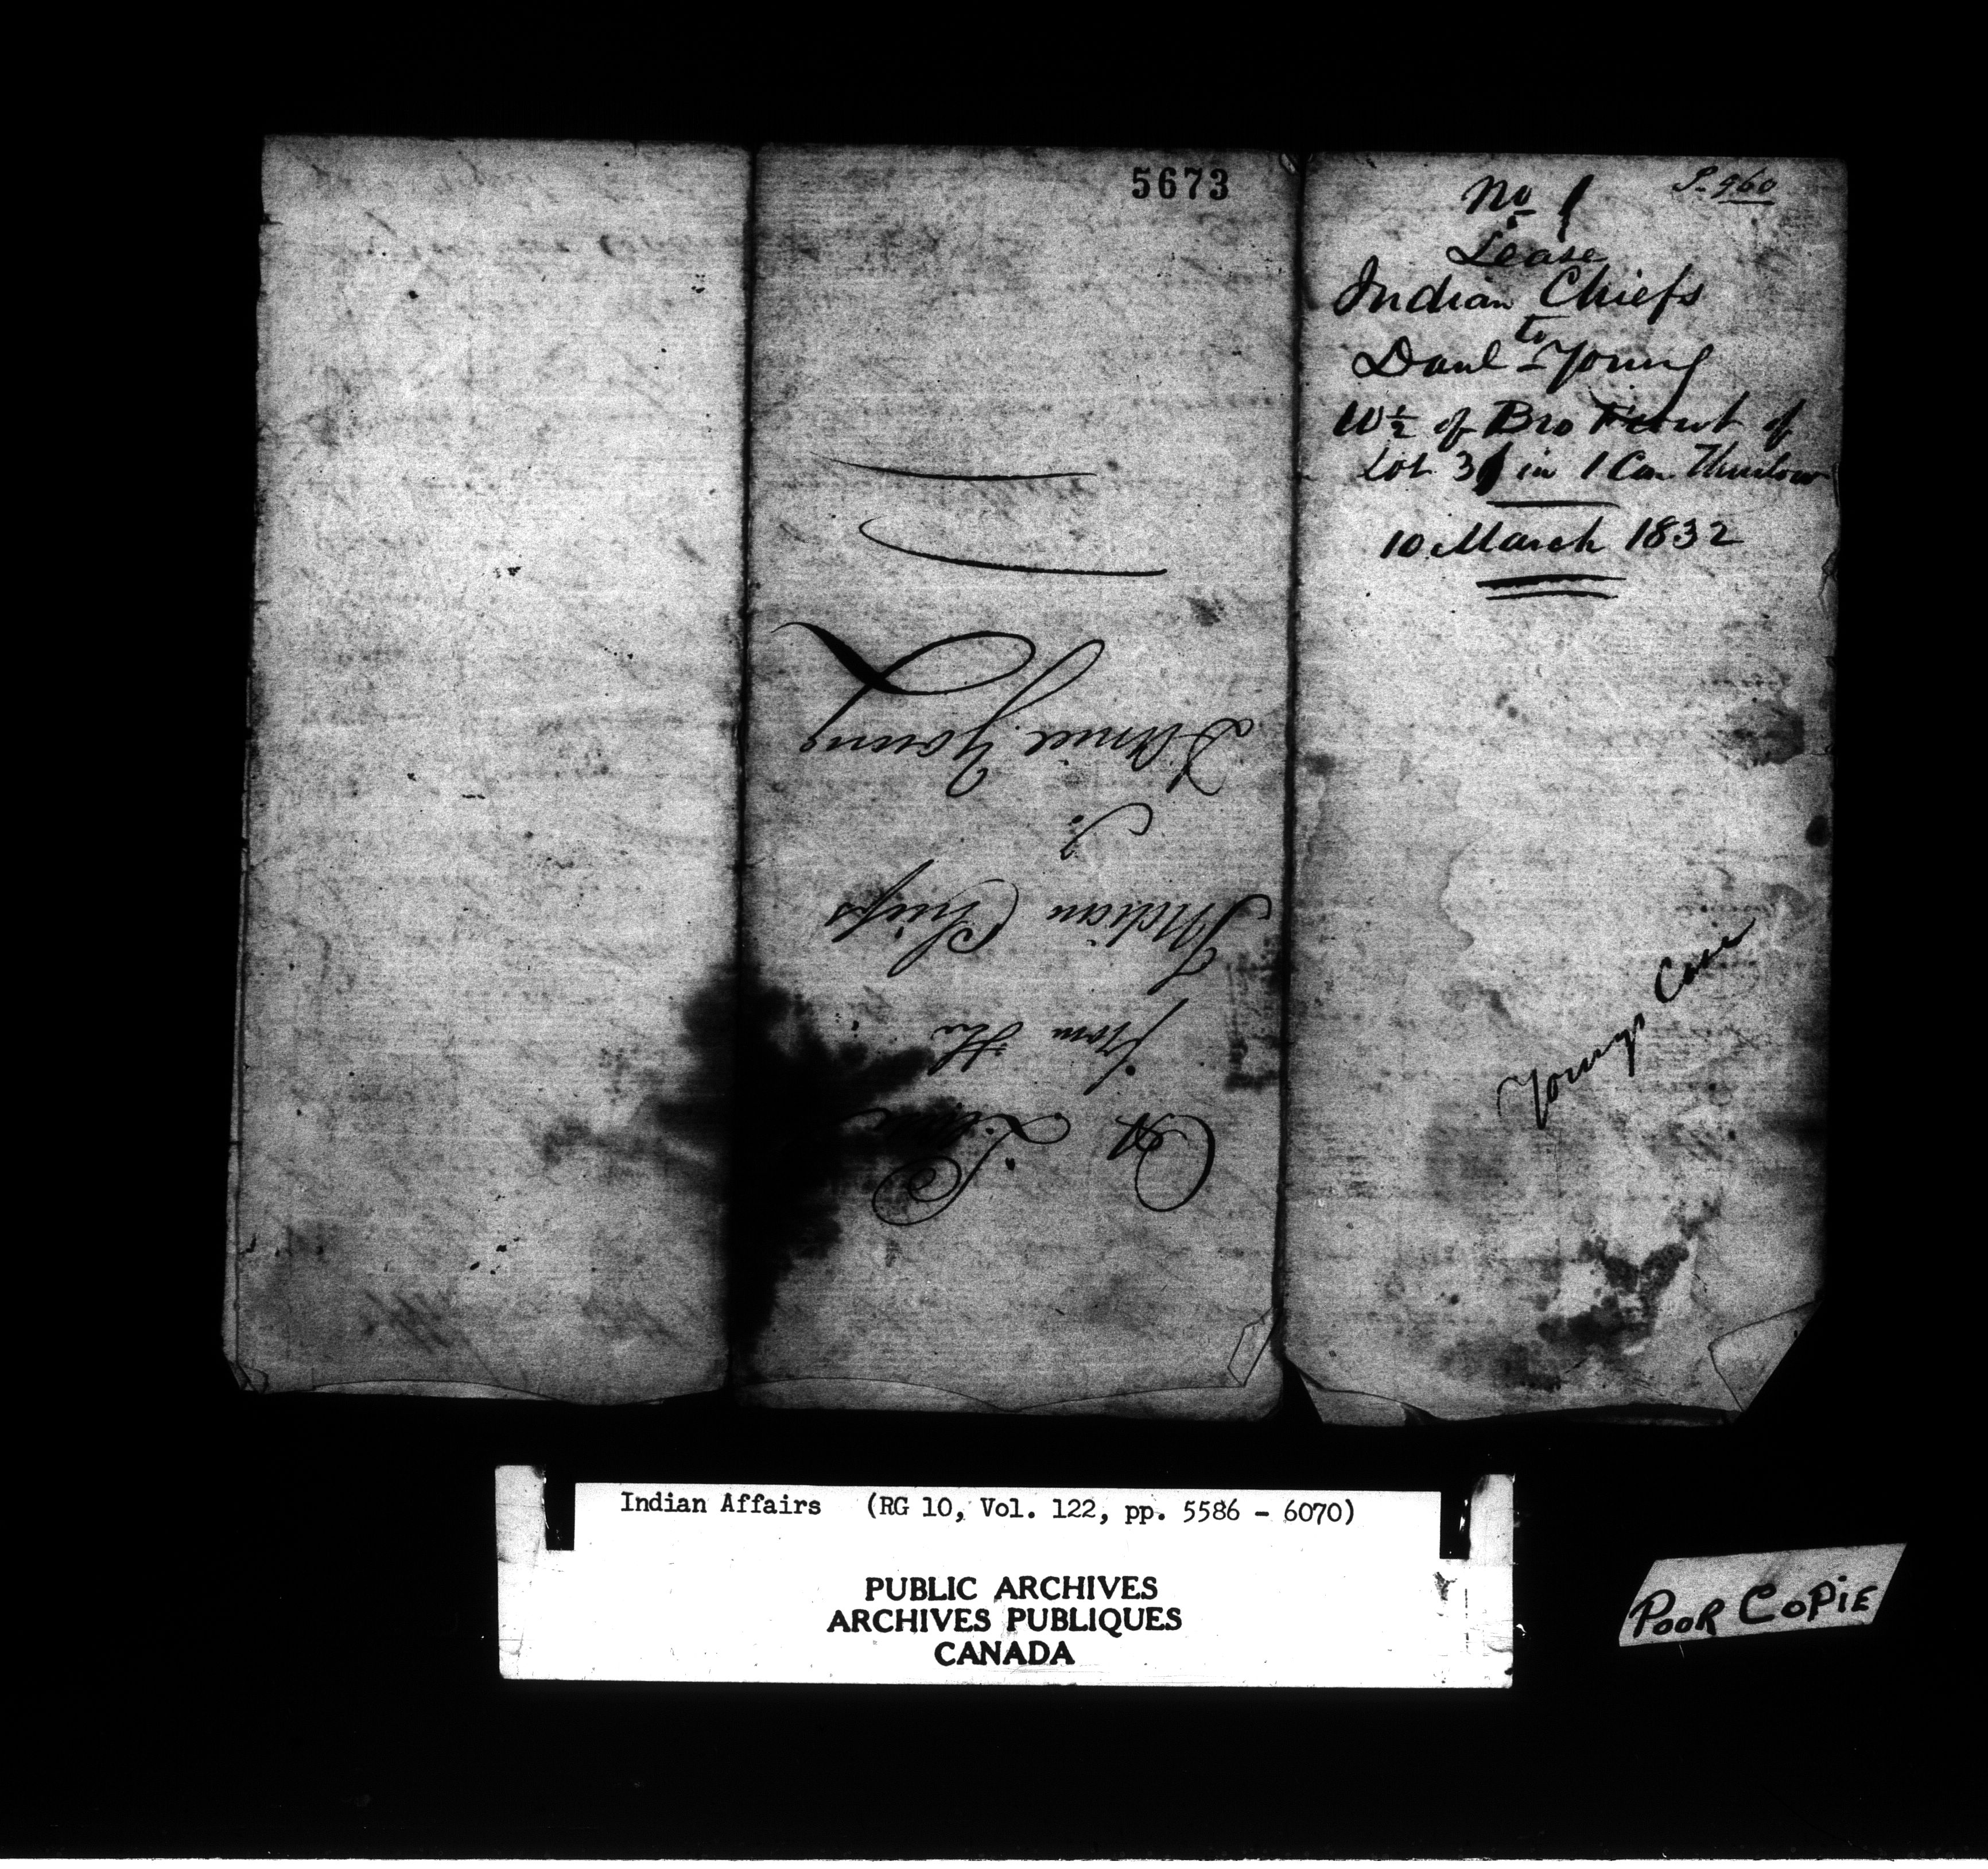 5673
A Lease
from the
Indian Chiefs
To
Daniel Young
No 1
Lease
Indian Chiefs
to
Danl Young
W ½ of Bro Front of
Lot 31 in 1 Con Thurlow
10 March 1832
Youngs Case
Indian Affairs (RG 10, Vol. 122, pp. 5586 - 6070)
PUBLIC ARCHIVES
ARCHIVES PUBLIQUES
CANADA
POOR COPIE